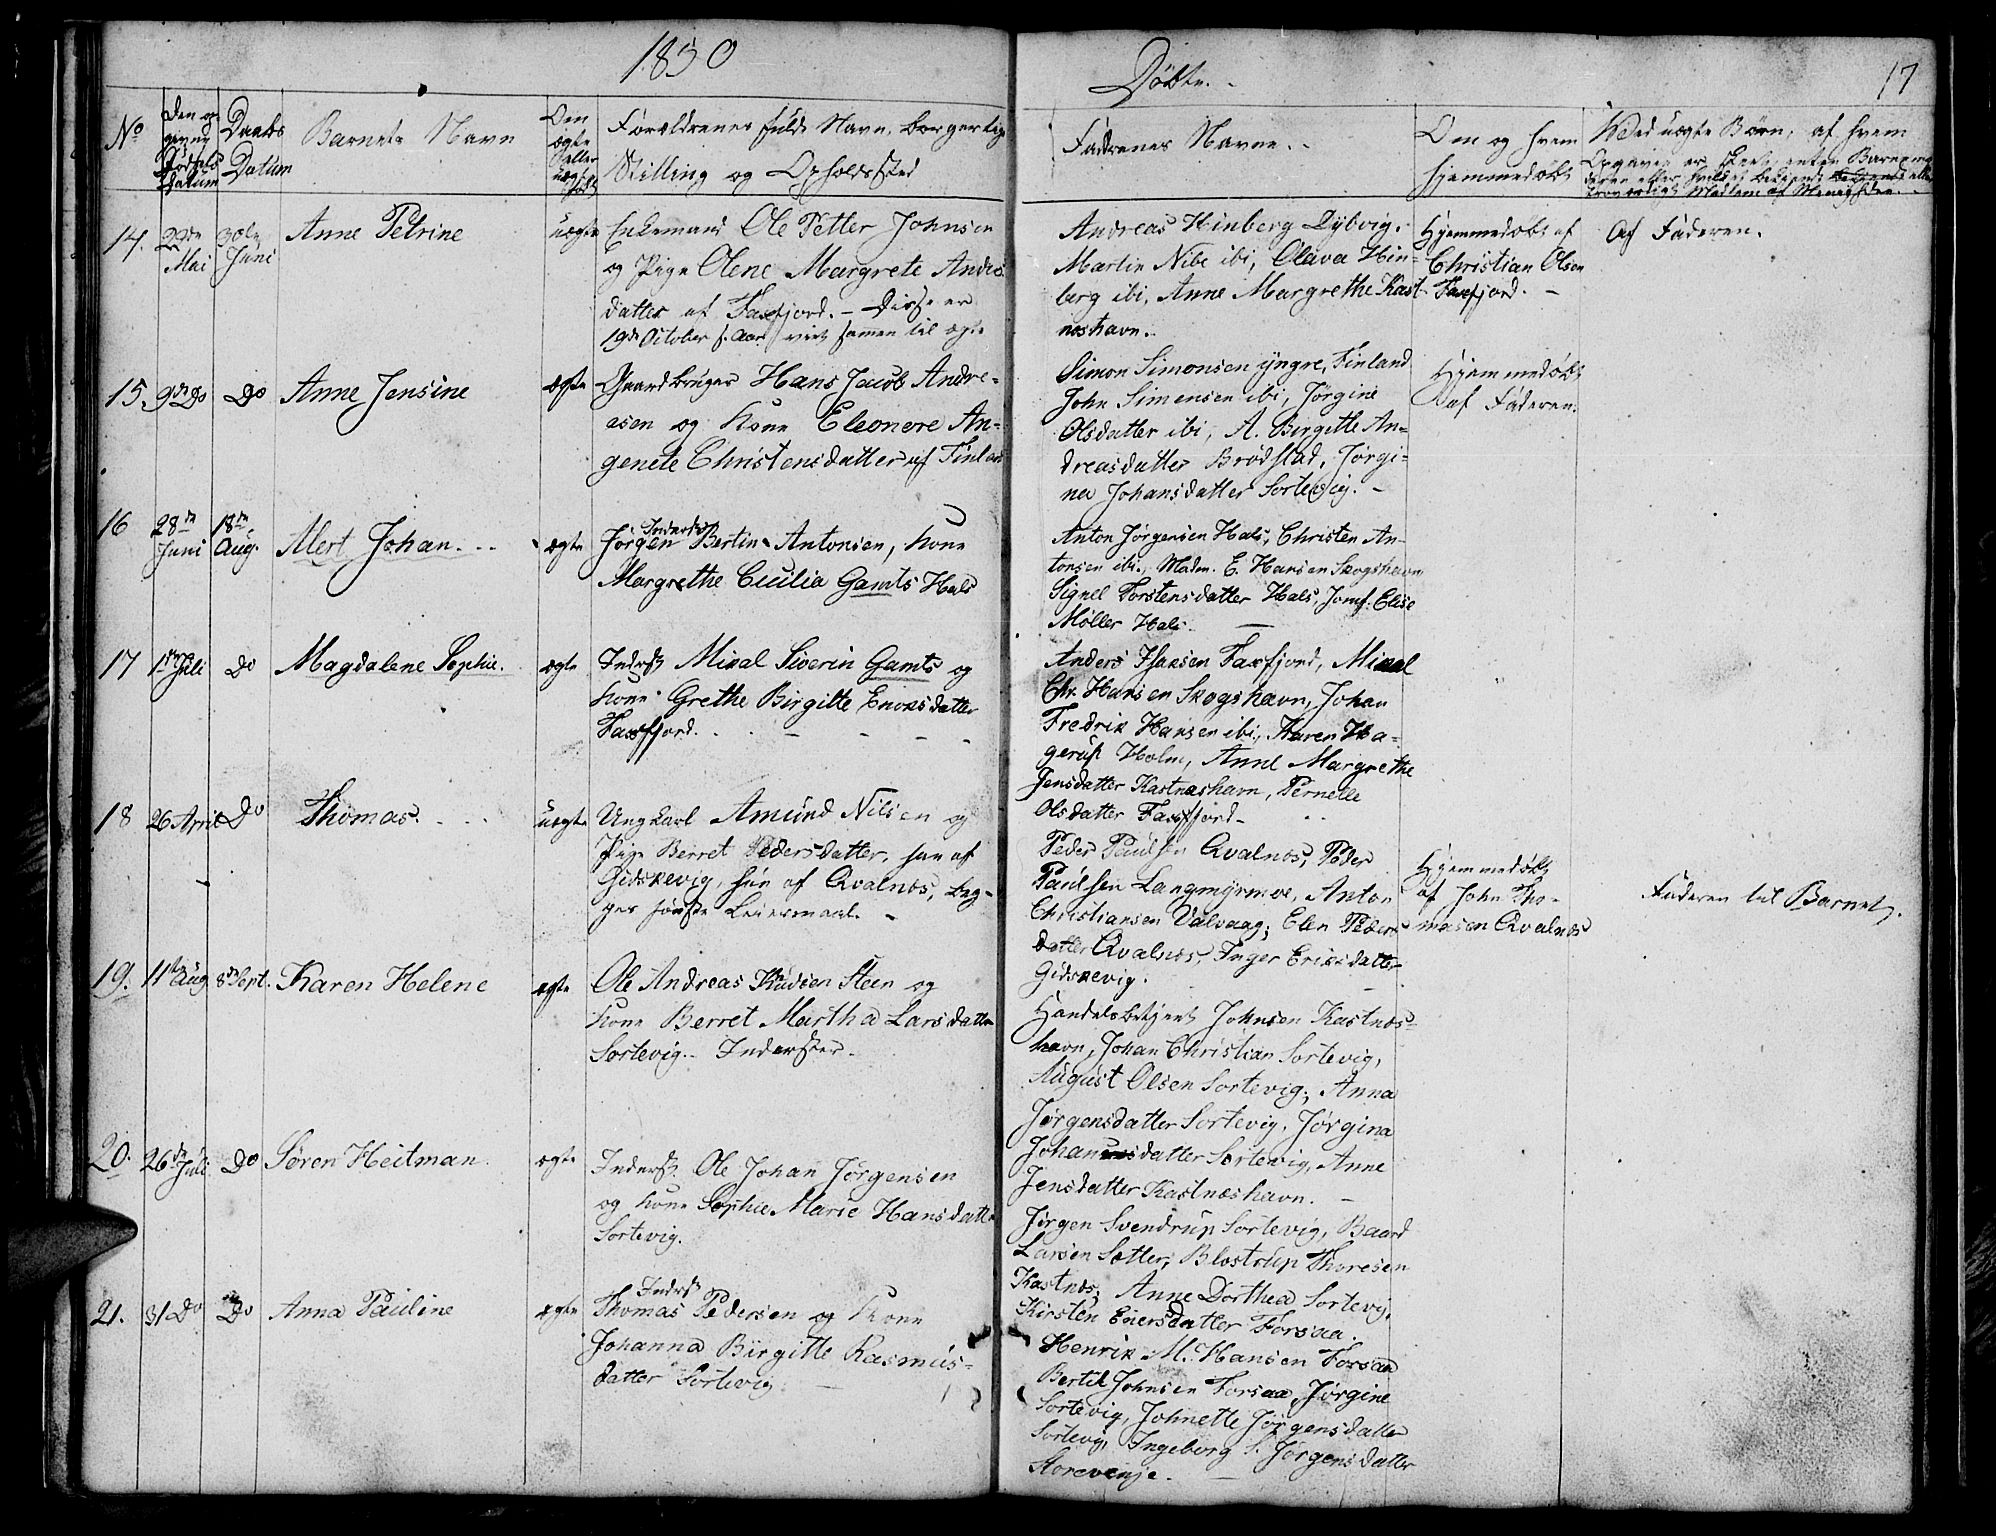 1850
Døbte.
17
No
Den opgivne Fødsels Datum
Daabs Datum
Barnets Navn
Om ægte eller uægte født
Forældrenes fulde Navn, borgerlige
Stilling og Opholdssted
Faddrenes Navne.
Om og hvem hjemmedøbt
Ved uægte Børn, af hvem
Opgaven er skeet, enten Barnemoderen eller
Medlem af Menigheden.
14.
22de Mai
30te Juni
Anne Petrine
uægte
Enkemand Ole Petter Johnsen
og Pige Olene Margrete Andreas
datter af Faxfjord. - Disse er
19de October s. Aar viet samen til ægte
Andreas Hinberg Dybvig.
Martin Nibe ibi, Olava Hin-
berg ibi, Anne Margrethe Kast-
neshavn.
Hjemmedøbt af
Christian Olsen
Faxfjord. -
Af Faderen.
15.
9de Do
Do
Anne Jensine
ægte
Gaardbruger Hans Jacob Andre-
asen og Kone Eleonore An-
genete Christensdatter af Finland
Simon Simonsen yngre, Finland
John Simensen ibi, Jørgine
Olsdatter ibi, A. Birgitte An-
dreasdatter Brødstad, Jørgi-
na Johansdatter Sortevig. -
Hjemmedøbt
af Faderen.
16
28de Juni
18de Aug.
Mert Johan.
ægte
Inderst
Jørgen Bertin Antonsen, Kone
Margrethe Cecilia Gamts Hals
Anton Jørgensen Hals, Christen An-
tonsen ibi., Madm. E. Hansen Skogshavn
Signel Torstensdatter Hals, Jomf: Elise
Møller Hals.
17
1ste Juli
Do
Magdalene Sophie.
ægte
Inderst Mikal Siverin Gamts og
Kone Grethe Birgitte Enoksdatter
Faxfjord.
Anders Hansen Faxfjord, Mikal
Chr. Hansen Skogshavn, Johan
Fredrik Hansen ibi., Karen Ha-
gerup Holm, Anne Margrethe
Jensdatter Kastneshavn, Pernelle
Olsdatter Faxfjord-
18
26 April
Do
Thomas.
uægte
Ungkarl Amund Nilsen og
Pige Berret Pedersdatter, han af
Gidskevig, hun af Qvalnes, beg-
ges første Leiermaal. -
Peder Paulsen Qvalnes, Peder
Paulsen Langmyrmoe, Anton
Christiansen Valvaag; Elen Peders
datter Qvalnes, Inger Eriksdatter
Gidskevig.
Hjemmedøbt
af John Tho-
masen Qvalnes
Faderen til Barnet.
19.
11te Aug.
8de Sept.
Karen Helene
ægte
Ole Andreas Knudsen Steen og
Kone Berret Martha Larsdatter
Sortevig. - Inderster.
Handelsbetjent Johnsen Kastnes-
havn, Johan Christian Sortevig,
August Olsen Sortevig; Anna
Jørgensdatter Sortevig, Jørgina
Johansdatter Sortevig, Anne
Jensdatter Kastneshavn. -
20.
26de Juli
Do
Søren Heitman.
ægte
Inderst Ole Johan Jørgensen
og Kone Sophie Marie Hansdatter
Sortevig.
Jørgen Svendrup Sortevig, Baard
Larsen Sætter, Blostrup Thoresen
Kastnes; Anne Dorthea Sortevig,
Kirsten Enersdatter Forsaa.
21.
31 Do
Do
Anna Pauline
ægte
Inderst
Thomas Pedersen og Kone
Johanna Birgitte Rasmus-
datter Sortevig
Henrik M. Hansen Forsaa
Bertel Johnsen Forsaa, Jørgine
Sortevig, Johnette Jørgensdatter
Sortevig, Ingeborg S. Jørgensdatter
Storevenje.